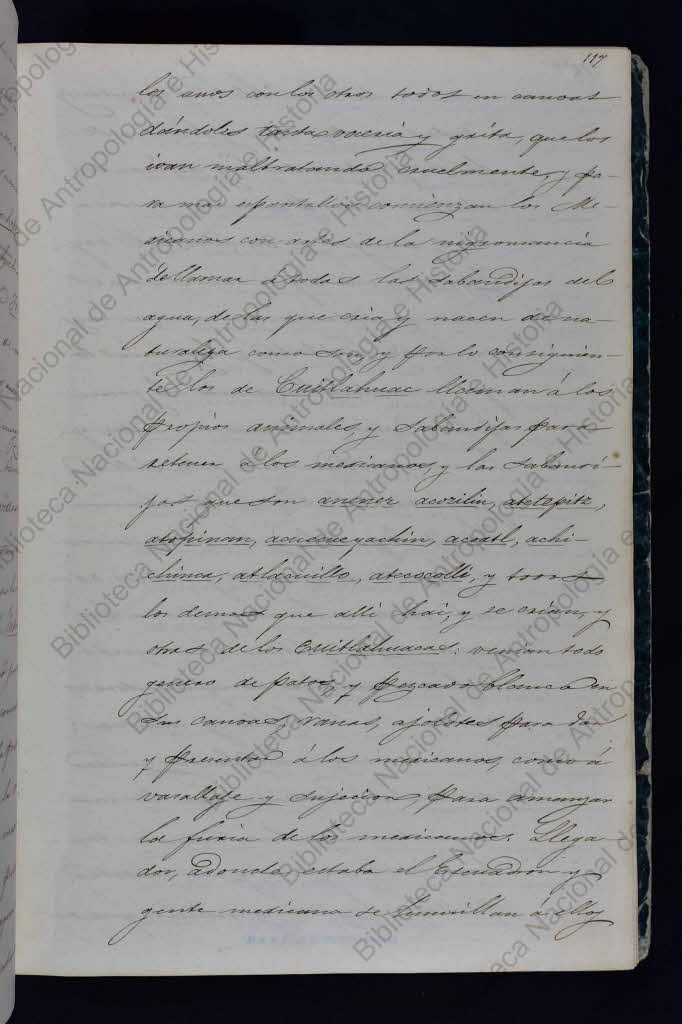 117
los unos con los otros todos en canoas
dándoles tanta voceria y grita, que los
ivan maltratando cruelmente, y pa-
ra mas espantallos comienzan los Me-
xicanos con artes de la nigromancia
de llamar á todas las sabandijas del
agua, de las que cria y nacen de na-
turaleza como son, y por lo consiguien-
te los de Cuitlahuac llaman á los
propios animales, y sabandijas para
retener á los mexicanos, y las sabandi-
jas que son anenez acozilin, atetepitz,
atopinan, acuecueyachin, acoatl, achi-
chinca, atlacuillo, atecocolli, y todos
los demas que alli hai, y se crian, y
otras de los Cuitlahuacas: venian todo
genero de patos, y pezcado blanco en
sus canoas, ranas, ajolotes para dar
y presentar á los mexicanos, como á
vasallaje y sujecion, para amanzar
la furia de los mexicanos. Llega-
dos, adonde estaba el Escuadron y
gente mexicana se humillan á ellos
Biblioteca Nacional de Antropología e Historia